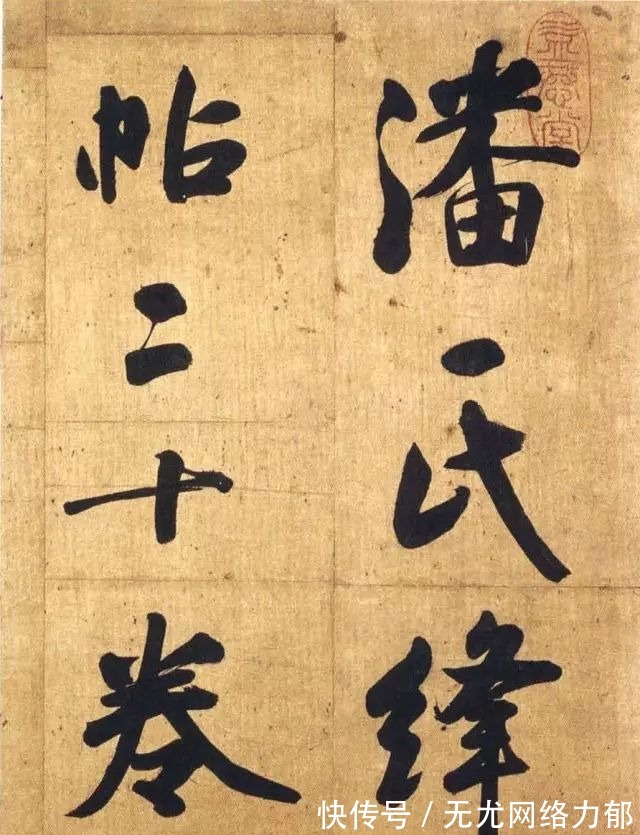 潘氏絳
帖二十卷
快传号 / 无尤网络力郁